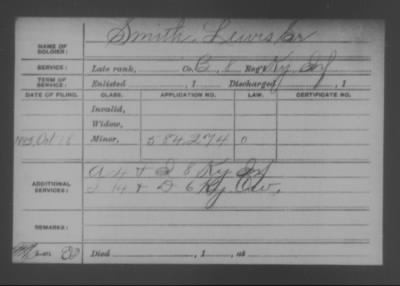 NAME OF SOLDIER: Smith, Lewis
SERVICE: Late rank, Co. C, 8 Reg't Ky Inf
TERM OF SERVICE: Enlisted , 1 Discharged , 1
DATE OF FILING. CLASS. APPLICATION NO. LAW. CERTIFICATE NO.
Invalid,
Widow,
Oct 18 Minor, 584,274 0
ADDITIONAL SERVICES: A 4 & D 8 Ky Inf
I 14 & D 6 Ky Cav.
REMARKS:
Died , 1 , at